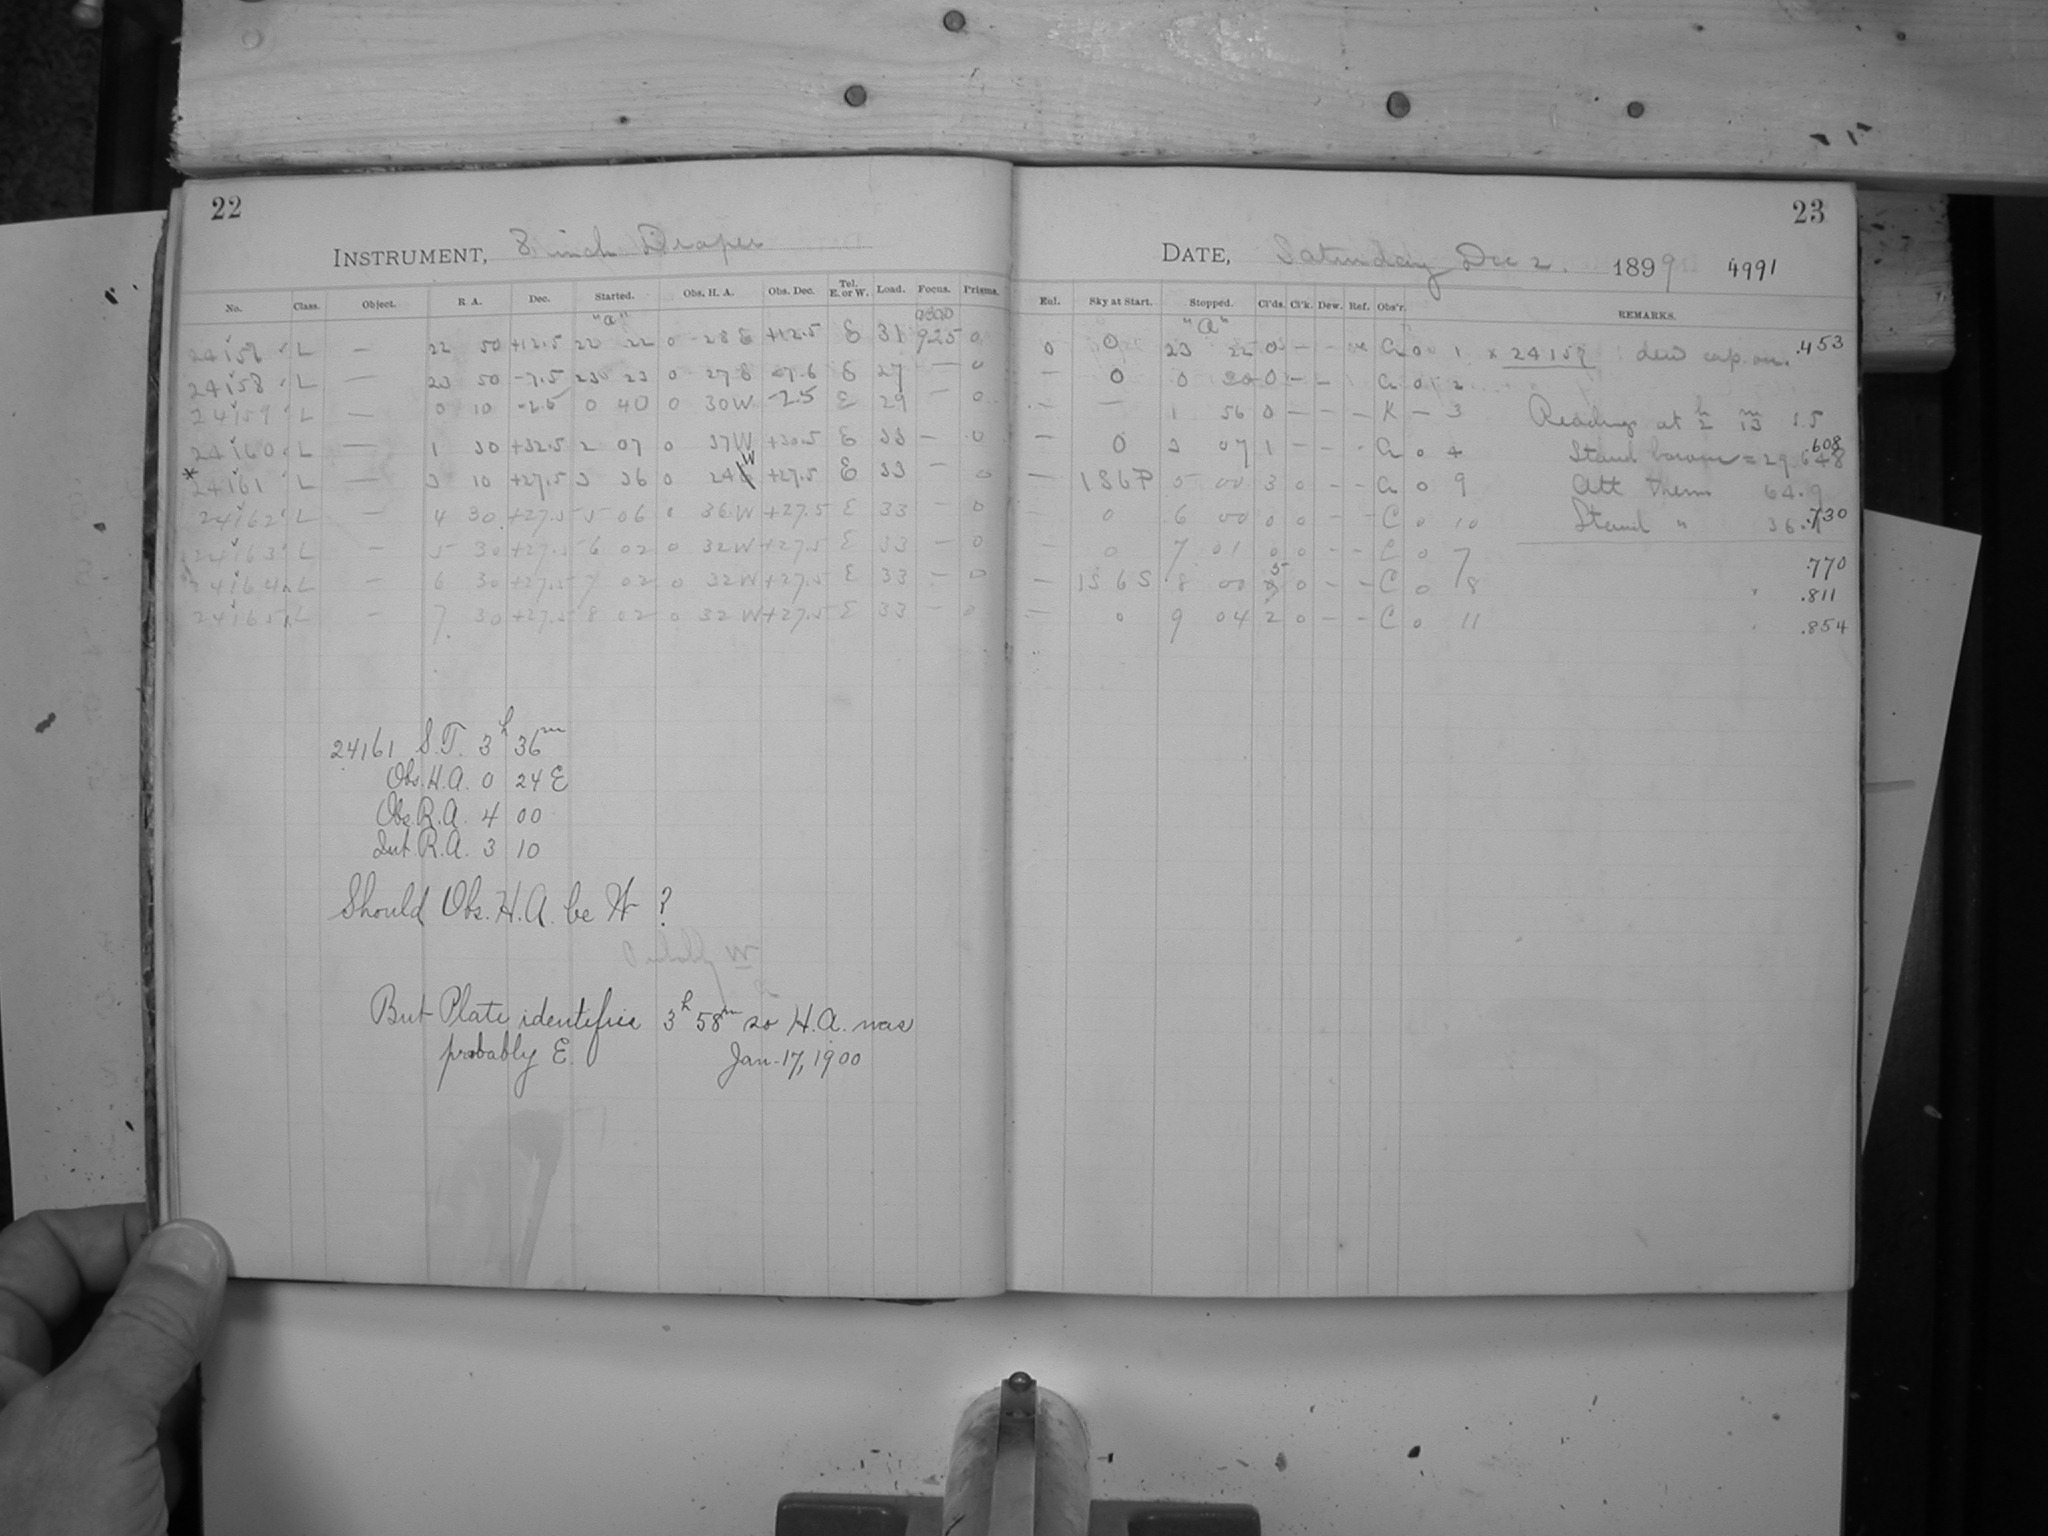 22
INSTRUMENT, 8 inch Draper
No. Class. Object. R. A. Dec. Started. Obs. H. A. Obs. Dec. Tel. E. or W. Load. Focus. Prisms.
"a"
L — 22 50 +12.5 22 22 0 28 E +12.5 E 31 925 0
24158 L — 23 50 -7.5 23 23 0 27 E -7.6 E 27 — 0
24159 L — 0 10 -2.5 0 40 0 30 W -2.5 E 29 — 0
24160 L — 1 30 +32.5 2 07 0 37 W +30.5 E 33 — 0
* 24161 L — 3 10 +27.5 3 36 0 24 W +27.5 E 33 — 0
24162 L — 4 30 +27.5 5 06 0 36 W +27.5 E 33 — 0
24163 L — 5 30 +27.5 6 02 0 32 W +27.5 E 33 — 0
24164 L — 6 30 +27.5 7 02 0 32 W +27.5 E 33 — 0
24165 L — 7 30 +27.5 8 02 0 32 W +27.5 E 33 — 0
24161 S.T. 3h 36m
Obs. H.A. 0 24 E
Obs. R.A. 4 00
Int. R.A. 3 10
Should Obs. H.A. be W ?
Probably W
But Plate identifies 3h 58m so H.A. was
probably E. Jan. 17, 1900
23
DATE, Saturday Dec 2. 1899 4991
Eul. Sky at Start. Stopped. Cl'ds. Cl'k. Dew. Ref. Obs'r. REMARKS.
"a"
0 0 23 22 0 — — G 0 1 x 24157 : dew cap on. .453
— 0 0 0 — — G 0 2
— — 1 56 0 — — — K — 3 Readings at h 2 m 13 s 5
— 0 3 07 1 — — — G 0 4 Stand barom = 29.648 .608
— 1S6P 5 00 3 0 — — G 0 9 Att Therm 64.9
— 0 6 00 0 0 — — C 0 10 Stand " 36. .730
— 0 7 01 0 0 — — C 0 7 .770
— 1S6S 8 00 5 0 — — C 0 8 .811
— 0 9 04 2 0 — — C 0 11 .854